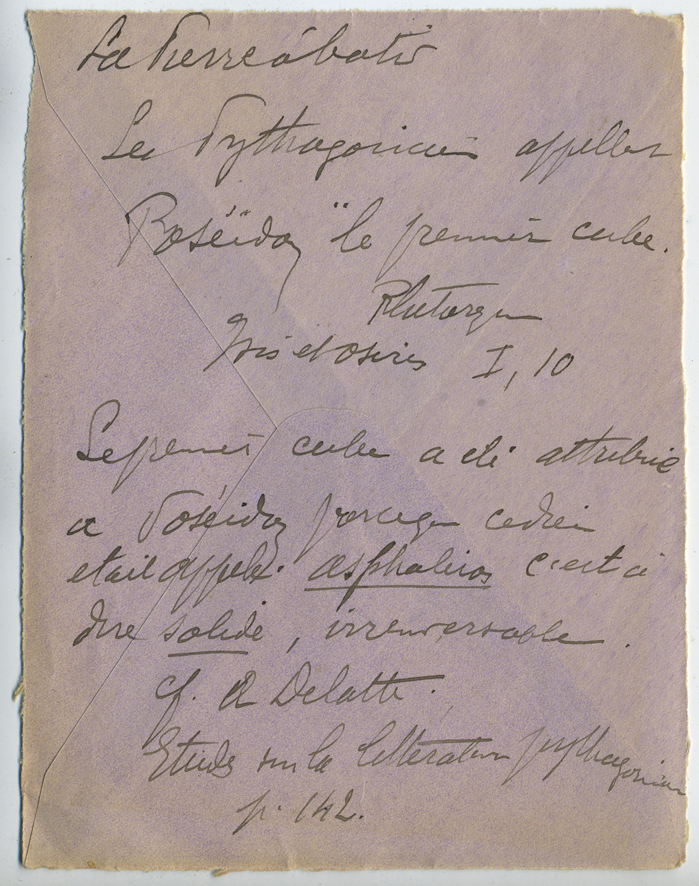 La Pierre à batir
Les Pythagoriciens appellent
Poséidon "le premier cube.
Plutarque
Isis et Osiris I, 10
Le premier cube a été attribué
a Poséidon parceque ce dieu
etait appelé asphaleios c'est à
dire solide, irrenversable.
cf. A Delatte.
Etudes sur la littérature pythagoricienne
p. 142.